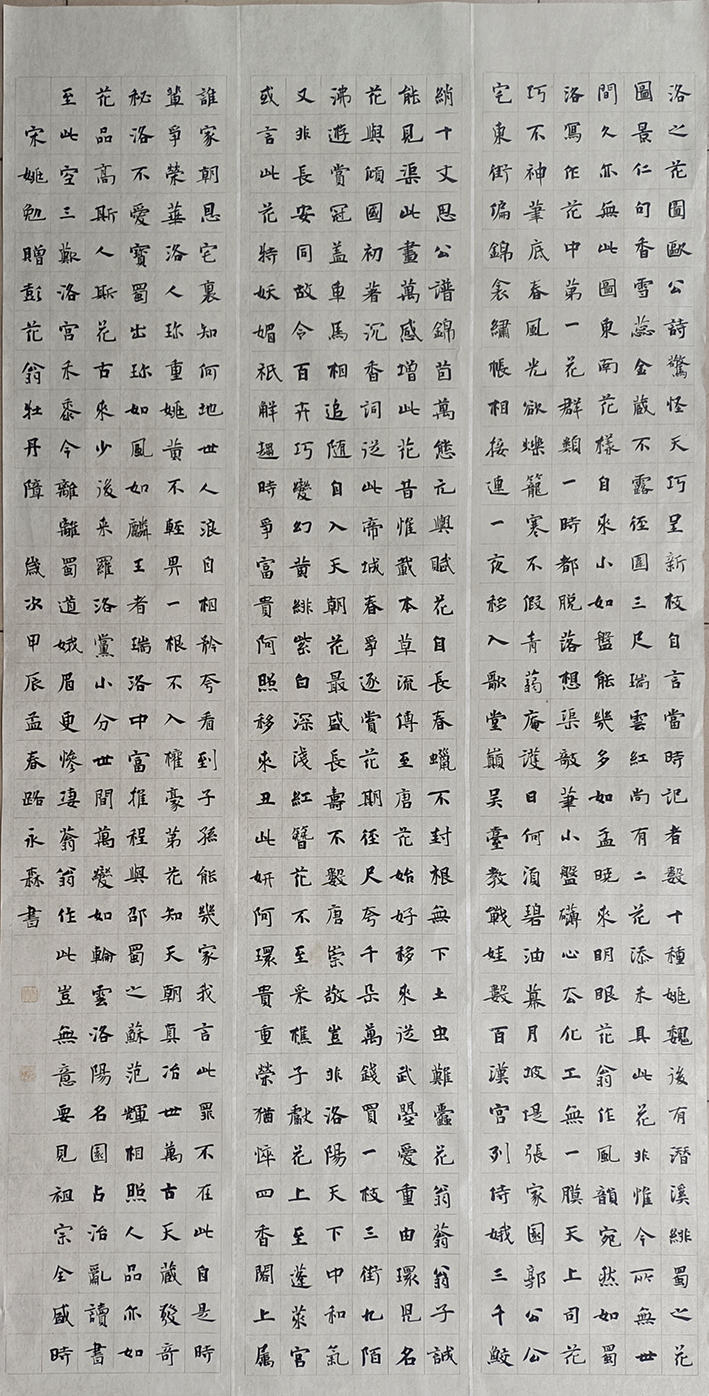 洛之花圖歐公詩驚怪天巧呈新枝自言當時記者數十種姚魏後有潛溪緋蜀之花
圖景仁句香雪蕊金藏不露徑圍三尺瑞雲紅尚有二花添未具此花非惟今所無世
間久亦無此圖東南花樣自來小如盤能幾多如盂曉來明眼花翁作風韻宛然如蜀
洛寫作花中第一花群類一時都脫落想渠敲筆小盤礴心去化工無一膜天上司花
巧不神筆底春風光欲爍籠寒不假青蒻庵護日何須碧油幕月坡堤張家園郭公公
宅東街編錦衾繡帳相接連一夜移入歌堂巔吳臺教戰娃數百漢宮列侍娥三千鮫
綃十丈恩公譜錦茵萬態元與賦花自長春蠟不封根無下土虫難蠹花翁蓊翁子誠
能見渠此畫萬感增此花昔惟載本草流傳至唐花始好移來從武曌愛重由環見名
花與傾國初著沉香詞從此帝城春爭逐賞花期徑尺夸千朵萬錢買一枝三街九陌
沸遊賞冠蓋車馬相追隨自入天朝花最盛長壽不數唐崇敬豈非洛陽天下中和氣
又非長安同故令百卉巧變幻黃緋紫白深淺紅簪花不至采樵子獻花上至蓬萊宮
或言此花特妖媚祇解趨時爭富貴阿照移來丑此妍阿環貴重榮猶悴四香閣上屬
誰家朝恩宅裏知何地世人浪自相矜夸看到子孫能幾家我言此罪不在此自是時
輩爭榮華洛人珎重姚黃不輕畀一根不入權豪第花知天朝真冶世萬古天藏發奇
秘洛不愛寶蜀出珎如鳳如麟王者瑞洛中富推程與邵蜀之蘇范輝相照人品亦如
花品高斯人斯花古來少後來羅洛黨小分世間萬變如輪雲洛陽名園占治亂讀書
至此空三歎洛宮禾黍今離離蜀道娥眉更慘淒蓊翁作此豈無意要見祖宗全盛時
宋姚勉贈彭花翁牡丹障 歲次甲辰孟春路永森書